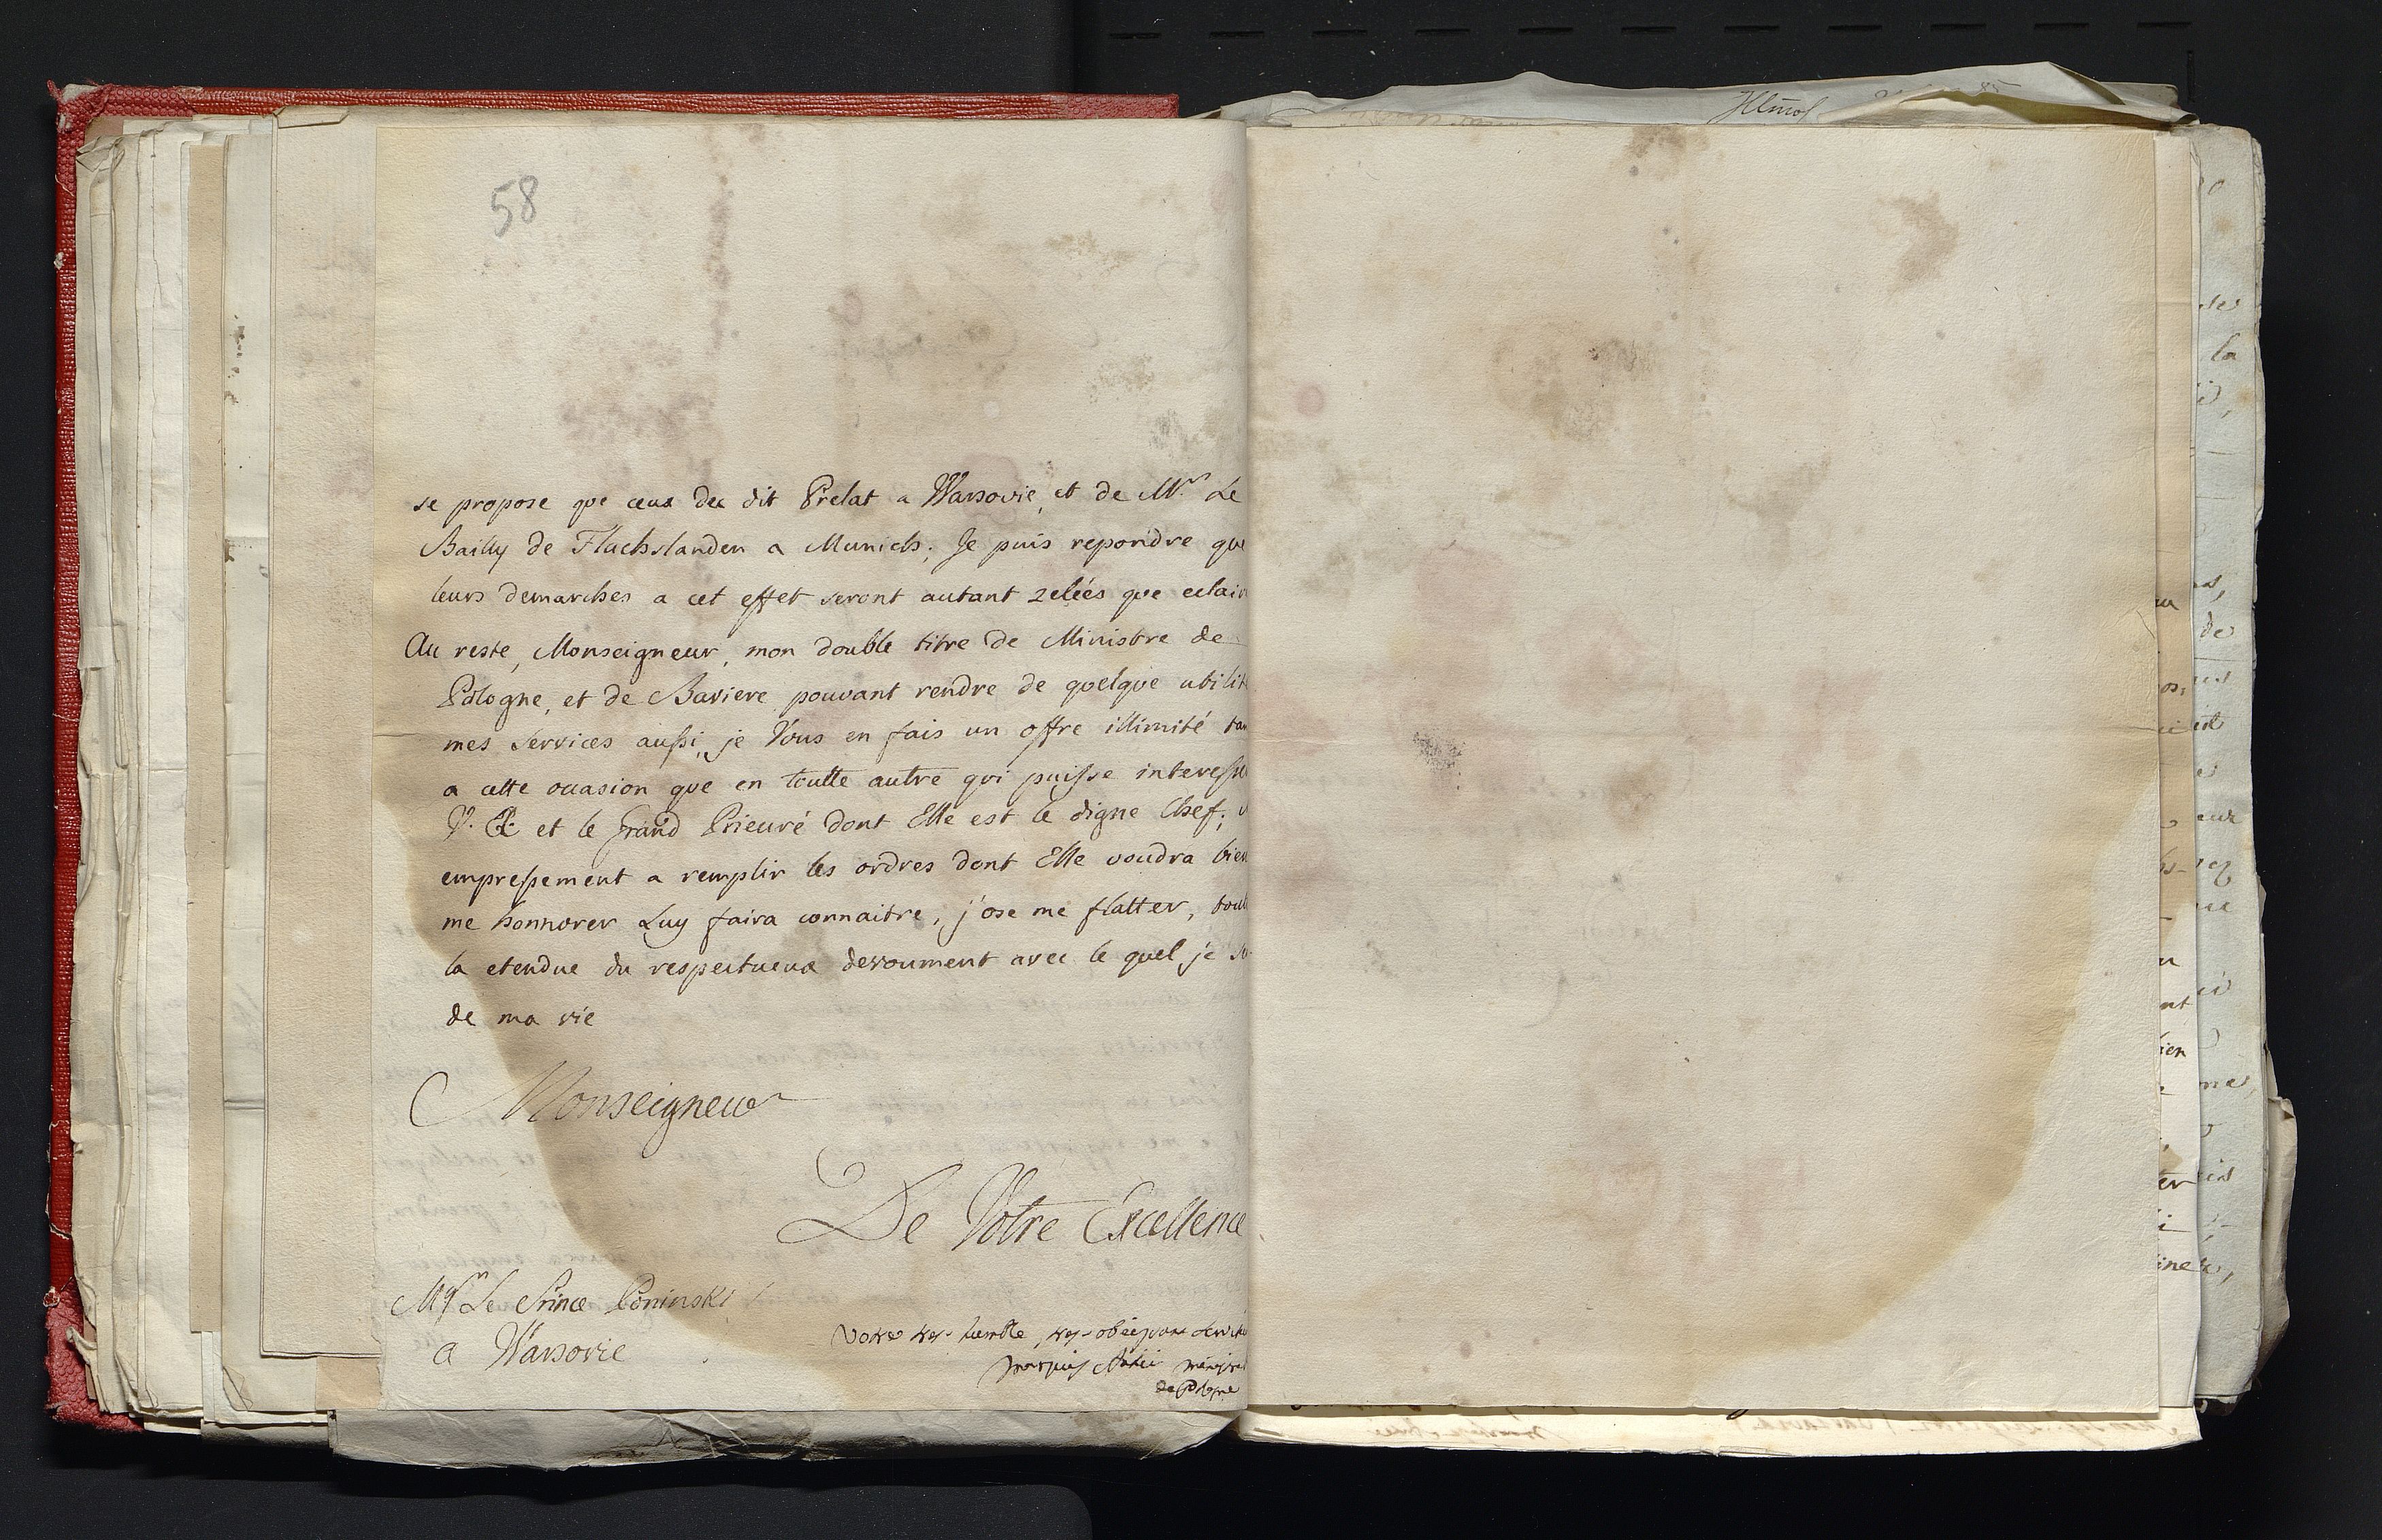 58
se propose que ceux du dit Prelat a Warsovie, et de Mr. Le
Bailly de Flachslanden a Munich; Je puis repondre que
leurs demarches a cet effet seront autant zelées que eclair
Au reste, Monseigneur, mon double titre de Ministre de
Pologne, et de Baviere pouvant rendre de quelque utilit
mes services aussi, je Vous en fais un offre illimité tan
a cette occasion que en toutte autre qui puisse interesse
V. E. et le Grand Prieuré dont Elle est le digne Chef;
empressement a remplir les ordres dont Elle voudra bien
me honnorer Luy faira connaitre, j'ose me flatter, tout
la etendue du respectueux devoument avec le quel je
de ma vie
Monseigneur
De Votre Excellence
Mgr Le Prince Poninski
a Warsovie
Votre tres humble, tres obeissant Servite
marquis
de Pologne